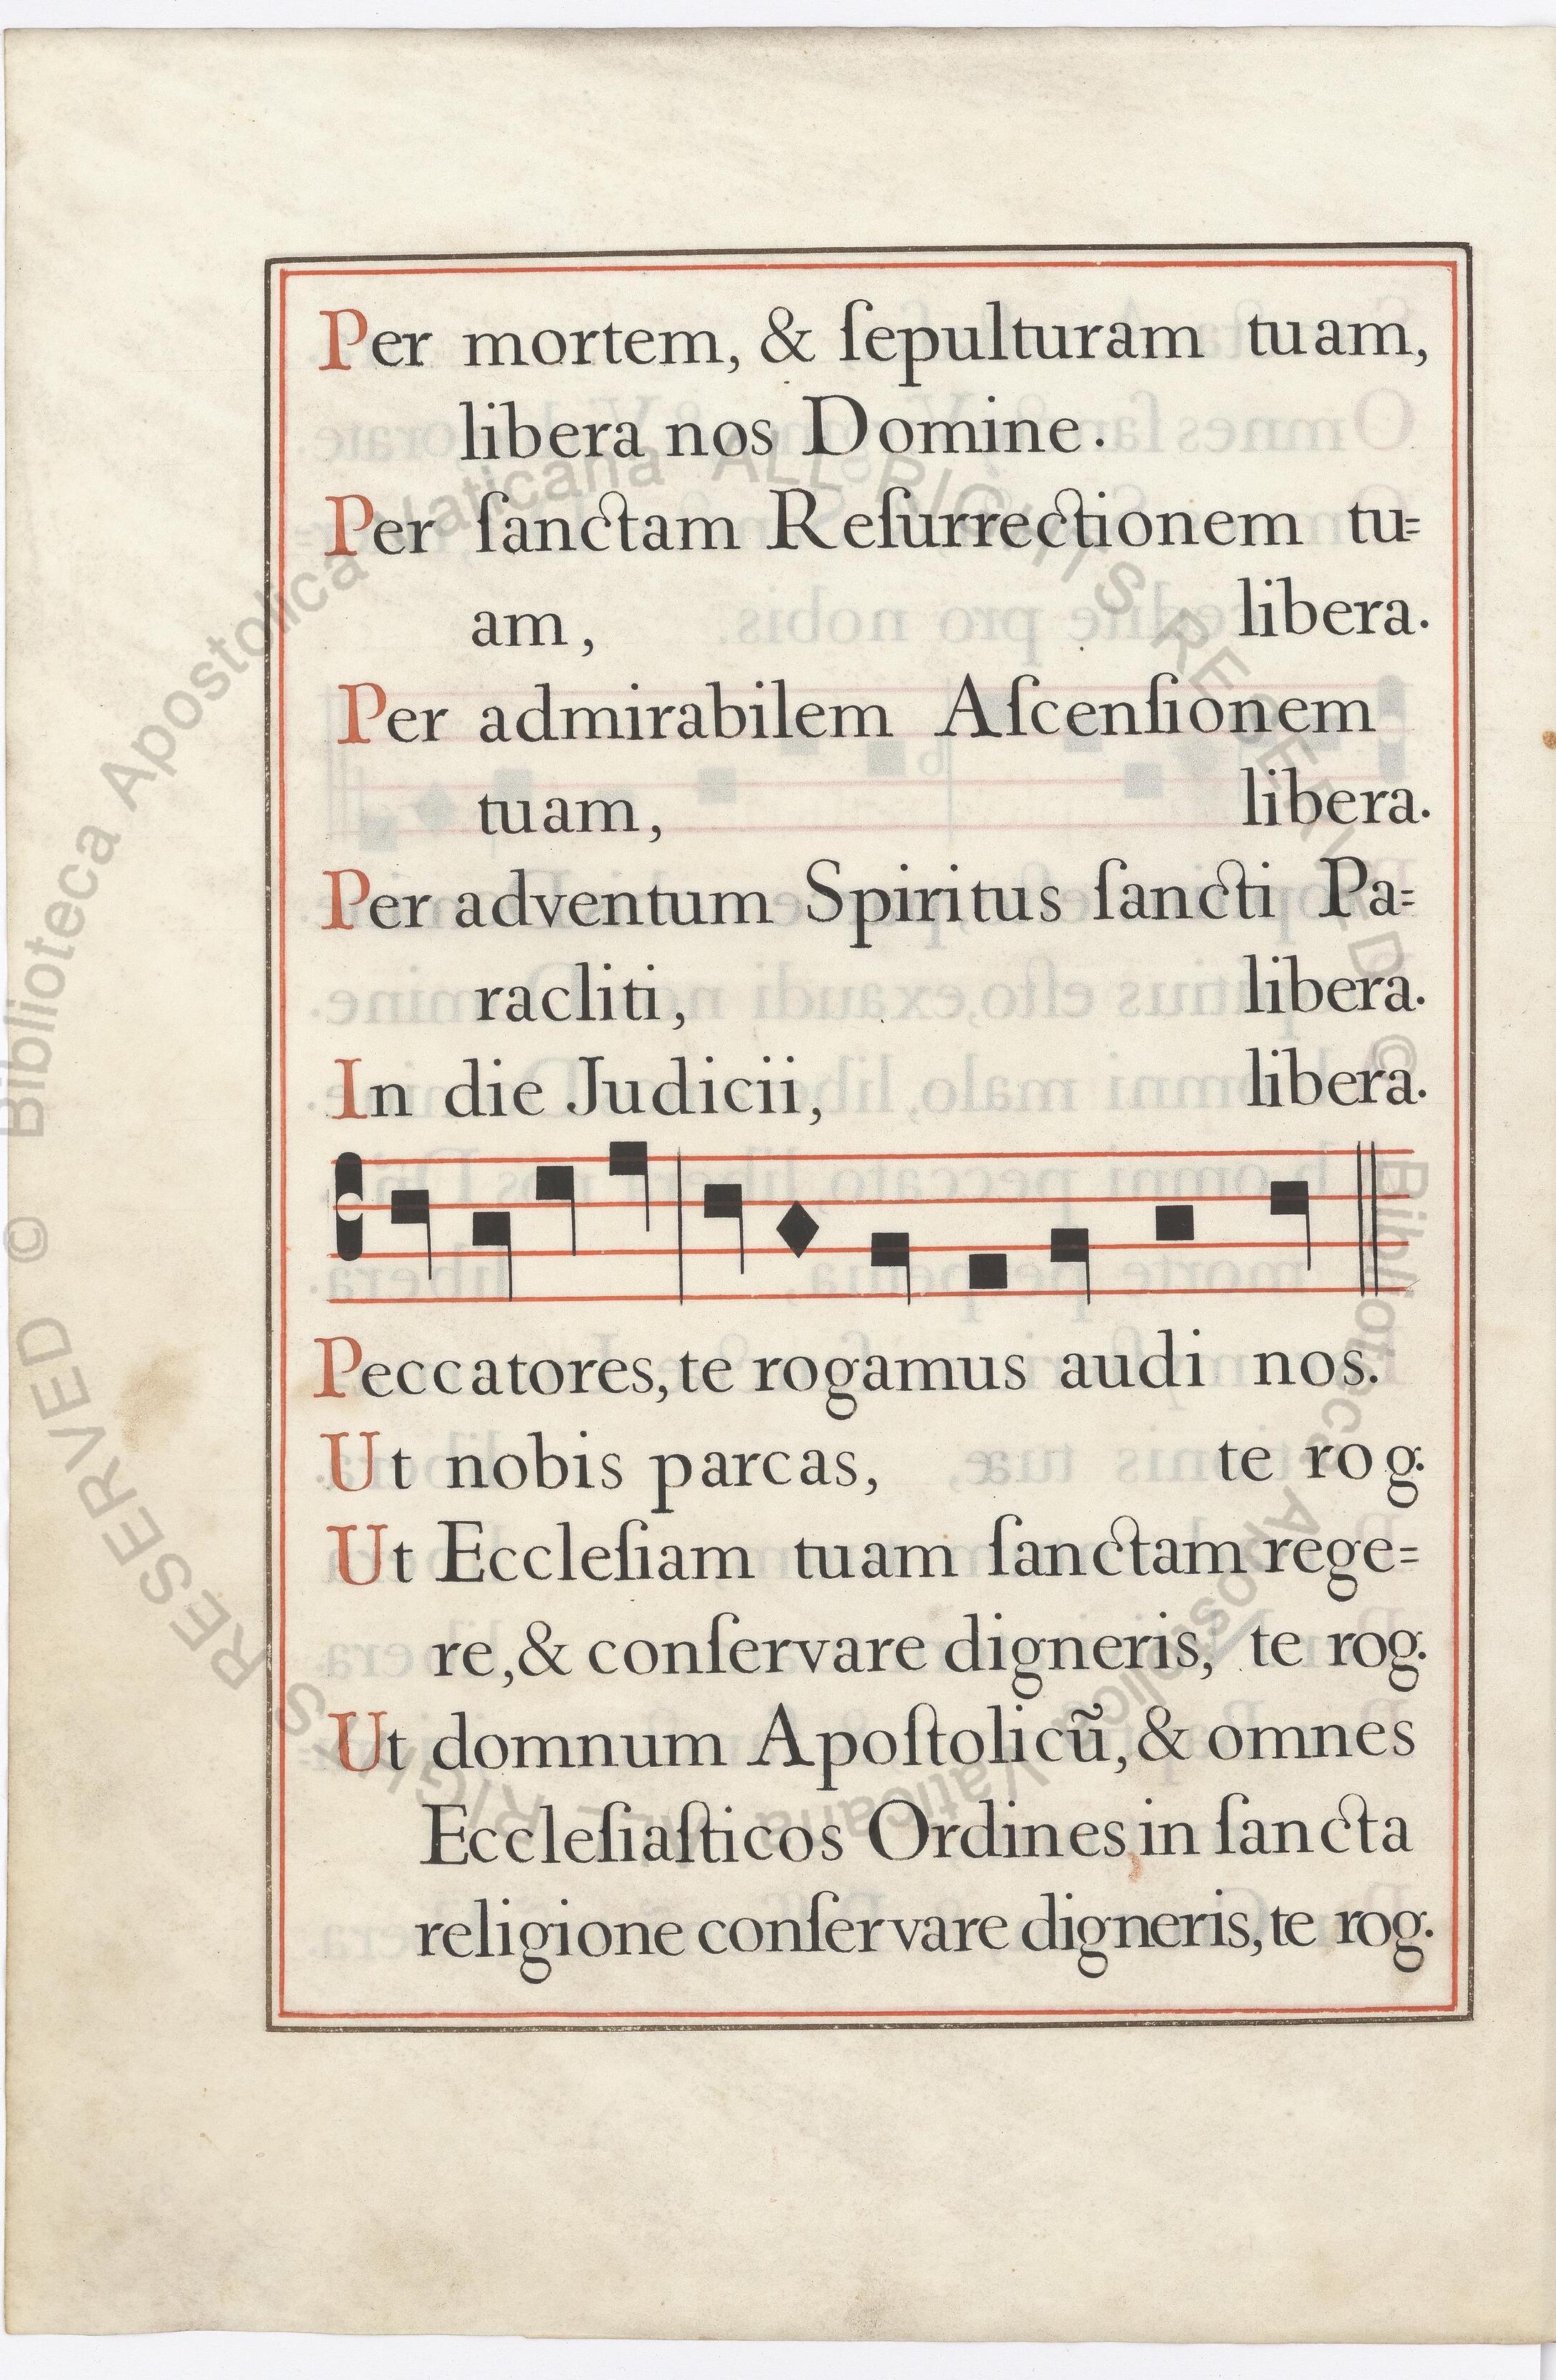 Per mortem, & ſepulturam tuam,
libera nos Domine.
Per ſanctam Reſurrectionem tu=
am, libera.
Per admirabilem Aſcenſionem
tuam, libera.
Per adventum Spiritus ſancti Pa=
racliti, libera.
In die Judicii, libera.
Peccatores, te rogamus audi nos.
Ut nobis parcas, te rog.
Ut Eccleſiam tuam ſanctam rege=
re, & conſervare digneris, te rog.
Ut domnum Apoſtolicū, & omnes
Eccleſiaſticos Ordines in ſancta
religione conſervare digneris, te rog.
© Biblioteca Apostolica Vaticana ALL RIGHTS RESERVED © Biblioteca Apostolica Vaticana ALL RIGHTS RESERVED